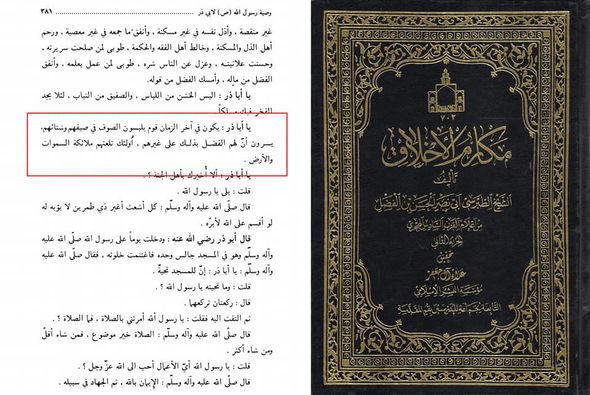 وصية رسول الله (ص) لابي ذر ................ ٣٨١
غير منقصة ، وأذل نفسه في غير مسكنة ، وأنفق ما جمعه في غير معصية ، ورحم
أهل الذل والمسكنة ، وخالط أهل الفقه والحكمة . طوبى لمن صلحت سريرته ،
وحسنت علانيته ، وعزل عن الناس شره . طوبى لمن عمل بعلمه ، وأنفق
الفضل من ماله ، وأمسك الفضل من قوله .
يا أبا ذر : البس الخشن من اللباس ، والصفيق من الثياب ، لئلا يجد
الفخر فيك
يا أبا ذر : يكون في آخر الزمان قوم يلبسون الصوف في صيفهم وشتائهم،
يرون أنّ لهم الفضل بذلك على غيرهم ، أولئك تلعنهم ملائكة السموات
والأرض .
يا أبا ذر : ألا أخبرك بأهل الجنة ؟ .
قلت : بلى يا رسول الله .
قال صلّى الله عليه وآله وسلّم : كل أشعث أغبر ذي طمرين لا يؤبه له
لو أقسم على الله لأبرّه .
قال أبو ذر رضي الله عنه : ودخلت يوماً على رسول الله صلّى الله عليه
وآله وسلّم وهو في المسجد جالس وحده فاغتنمت خلوته ، فقال صلّى الله عليه
وآله وسلّم : يا أبا ذر : إنّ للمسجد تحيّة .
قلت : وما تحيته يا رسول الله ؟ .
قال : ركعتان تركعهما .
ثم التفت اليه فقلت : يا رسول الله أمرتني بالصلاة ، فما الصلاة ؟ .
قال صلّى الله عليه وآله وسلّم : الصلاة خير موضوع ، فمن شاء أقلّ
ومن شاء أكثر .
قلت : يا رسول الله أيّ الأعمال أحب الى الله عزّ وجل ؟ .
قال : الإيمان بالله ، ثم الجهاد في سبيله .
٧٠٢
مكارم الأخلاق
تأليف
الشيخ الطبرسي أبي نصر الحسن بن الفضل
من أعلام القرن السادس الهجري
الجزء الثاني
تحقيق
علاء آل جعفر
مؤسسة النشر الإسلامي
التابعة لجماعة المدرسين بقم المقدسة